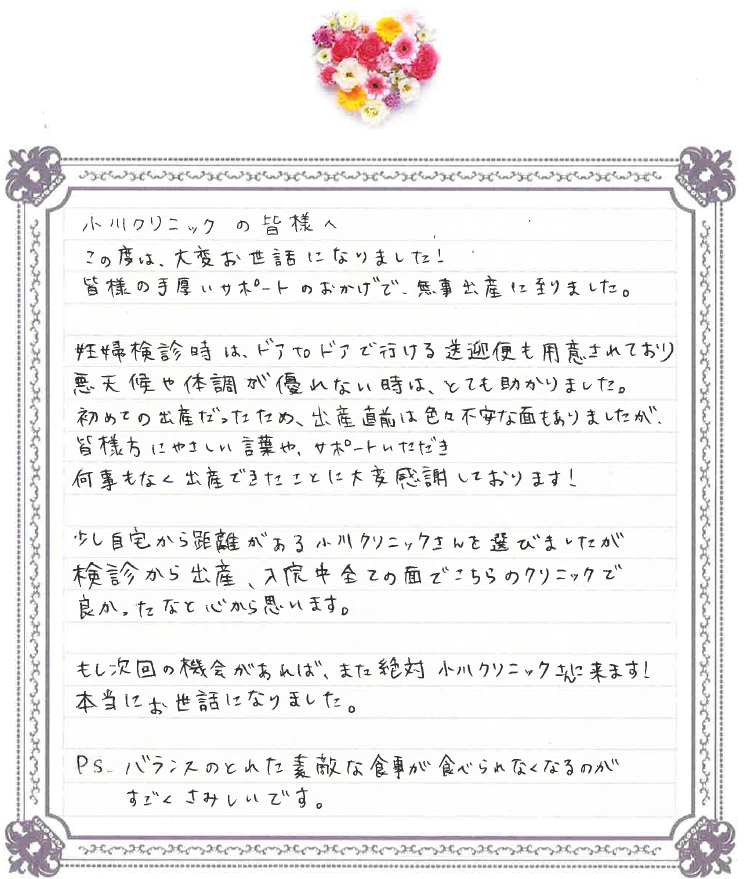 小川クリニックの皆様へ
この度は、大変お世話になりました!
皆様の手厚いサポートのおかげで、無事出産に至りました。
妊婦検診時は、ドアtoドアで行ける送迎便も用意されており
悪天候や体調が優れない時は、とても助かりました。
初めての出産だったため、出産直前は色々不安な面もありましたが、
皆様方にやさしい言葉や、サポートいただき
何事もなく出産できたことに大変感謝しております!
少し自宅から距離がある小川クリニックさんを選びましたが
検診から出産、入院中全ての面でこちらのクリニックで
良かったなと心から思います。
もし次回の機会があれば、また絶対小川クリニックさんに来ます!
本当にお世話になりました。
PS. バランスのとれた素敵な食事が食べられなくなるのが
すごくさみしいです。